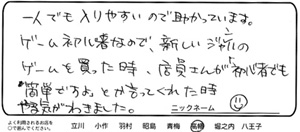 一人でも入りやすいので助かっています。
ゲーム初心者なので、新しいジャンルの
ゲームを買った時、店員さんが「初心者でも
簡単ですよ」と言ってくれた時
やる気がわきました。
ニックネーム
よく利用されるお店を
○で囲んでください。
立川 小作 羽村 昭島 青梅 高幡 堀之内 八王子